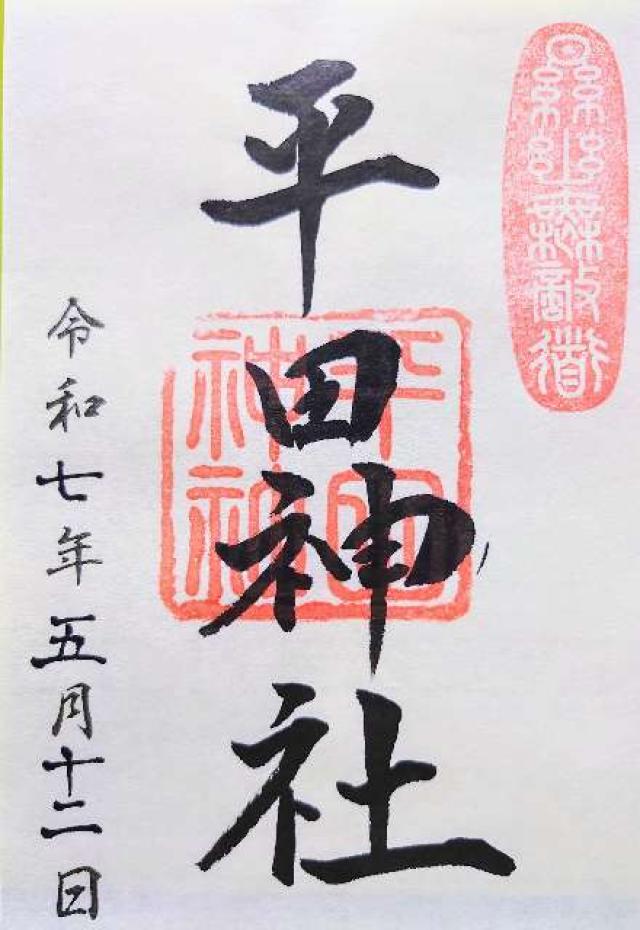 平田神社
平田
神社
令和七年五月十二日